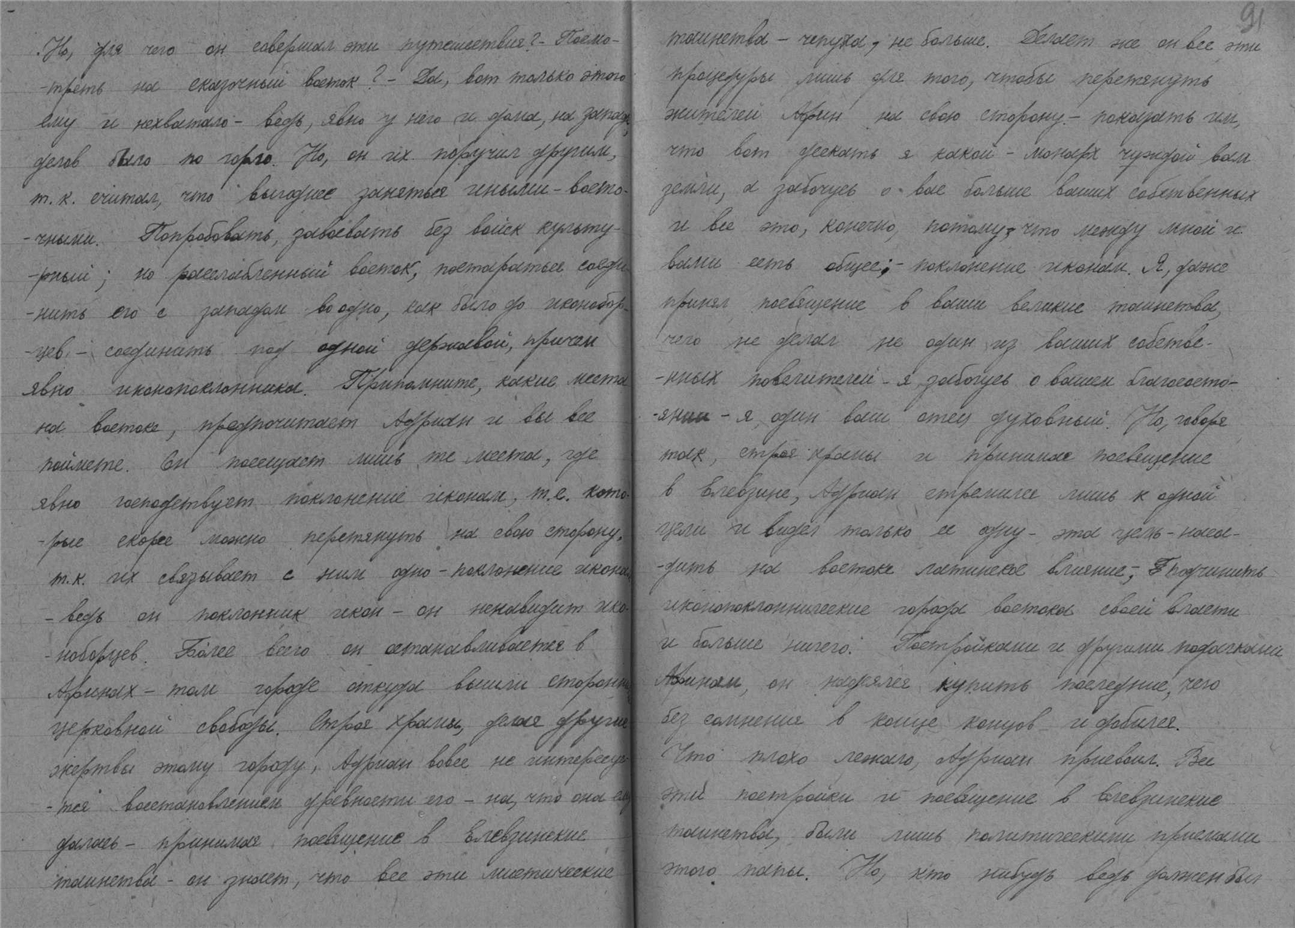 Но, для чего он совершал эти путешествия? - Посмо-
-треть на сказочный восток? - Да, вот только этого
ему и нехватало - ведь, явно у него и дома, на западе,
делов было по горло. Но, он их поручил другим,
т.к. считал, что выгоднее заняться иными - восто-
-чными. Попробовать, завоевать без войск культу-
-рный; но расслабленный восток, постараться соеди-
-нить его с западом воодно, как было до иконобор-
-цев - соединить под одной державой, причем
явно иконопоклонника. Припомните, какие места
на востоке, предпочитает Адриан и вы все
поймете. Он посещает лишь те места, где
явно господствует поклонение иконам, т.е. кото-
-рые скорее можно перетянуть на свою сторону,
т.к. их связывает с ним одно - поклонение иконам
- ведь он поклонник икон - он ненавидит ико-
-ноборцев. Более всего он останавливается в
Афинах - том городе откуда вышли сторонники
церковной свободы. Строя храмы, делая другие
жертвы этому городу, Адриан вовсе не интересуе-
-тся восстановлением древности его - на, что она ему
далась - принимая посвящение в Елевзинские
таинства - он знает, что все эти мистические
91
таинства - чепуха, не больше. Делает же он все эти
процедуры лишь для того, чтобы перетянуть
жителей Афин на свою сторону - показать им,
что вот дескать я какой - монарх чуждой вам
земли, а забочусь о вас больше ваших собственных
и все это, конечно, потому, что между мной и
вами есть общее; - поклонение иконам. Я, даже
принял посвящение в ваши великие таинства,
чего не делал не один из ваших собстве-
-нных повелителей - я забочусь о вашем благососто-
-янии - я, один ваш отец духовный. Но, говоря
так, строя храмы и принимая посвящение
в Елевзине, Адриан стремился лишь к одной
цели и видел только ее одну - эта цель - наса-
-дить на востоке латинское влияние, подчинить
иконопоклоннические города востока своей власти
и больше ничего. Постройками и другими подачками
Афинам, он надеялся купить последние, чего
без сомнения в конце концов и добился.
Что плохо лежало, Адриан присвоил. Все
эти постройки и посвящение в Елевзинские
таинства, были лишь политическими приемами
этого папы. Но, кто нибудь ведь должен был